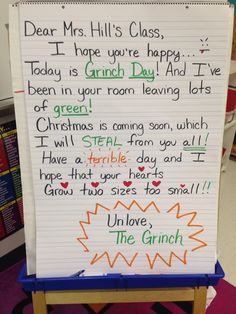 Dear Mrs. Hill's Class,
I hope you're happy...
Today is Grinch Day! And I've
been in your room leaving lots
of green!
Christmas is coming soon, which
I will STEAL from you all!
Have a terrible day and I
hope that your hearts
Grow two sizes too small!!
Unlove,
The Grinch